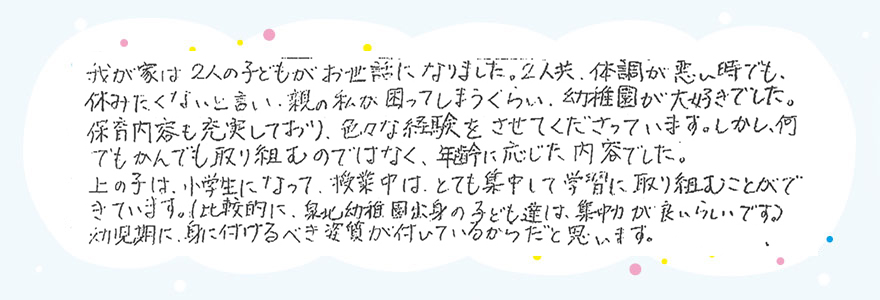 我が家は2人の子どもがお世話になりました。2人共、体調が悪い時でも、
休みたくないと言い、親の私が困ってしまうくらい、幼稚園が大好きでした。
保育内容も充実しており、色々な経験をさせてくださっています。しかし、何
でもかんでも取り組むのではなく、年齢に応じた内容でした。
上の子は、小学生になって、授業中は、とても集中して学習に取り組むことがで
きています。(比較的に、泉北幼稚園出身の子ども達は、集中力が良いらしいです。)
幼児期に、身に付けるべき姿質が付いているからだと思います。